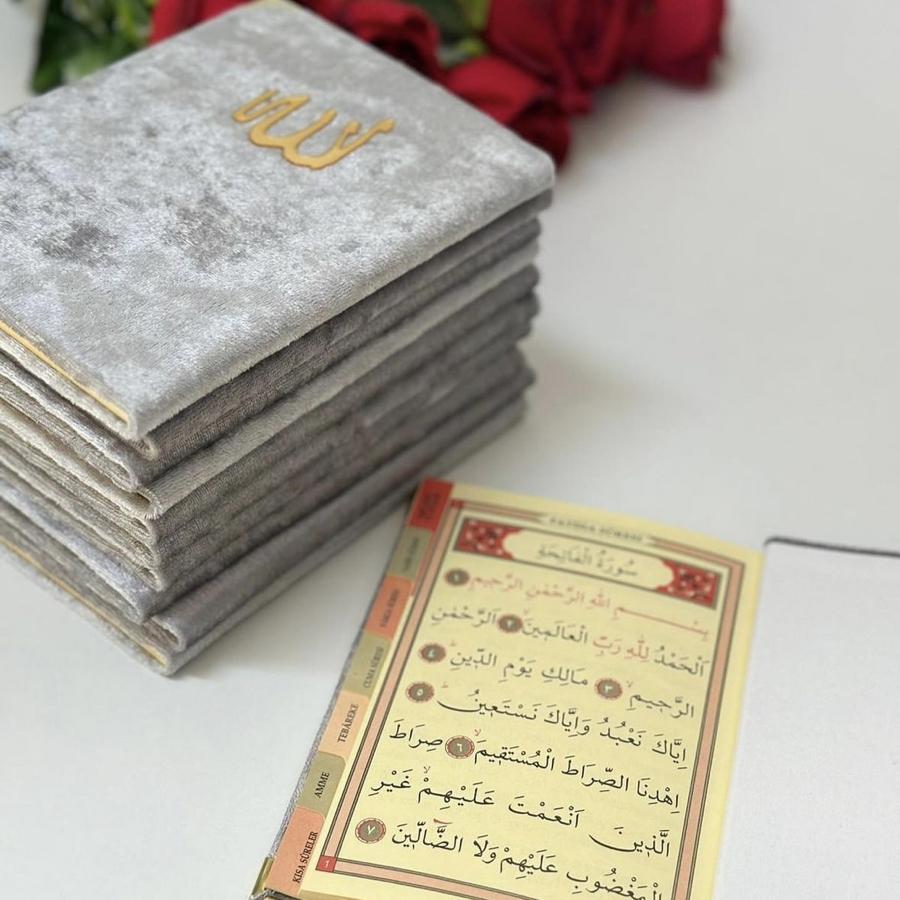 الله
FATİHA SÛRESİ
سُورَةُ الْفَاتِحَةِ
بِسْــــمِ اللهِ الرَّحْمٰنِ الرَّحِيمِ ١
اَلْحَمْدُ لِلّٰهِ رَبِّ الْعَالَمِينَ ٢ اَلرَّحْمٰنِ
الرَّحِيمِ ٣ مَالِكِ يَوْمِ الدِّينِ ٤
اِيَّاكَ نَعْبُدُ وَاِيَّاكَ نَسْتَعِينُ ٥
اِهْدِنَا الصِّرَاطَ الْمُسْتَقِيمَ ٦ صِرَاطَ
الَّذِينَ اَنْعَمْتَ عَلَيْهِمْ غَيْرِ
الْمَغْضُوبِ عَلَيْهِمْ وَلَا الضَّالِّينَ ٧
CUMA SÛRESİ
TEBÂREKE
AMME
KISA SÛRELER
1